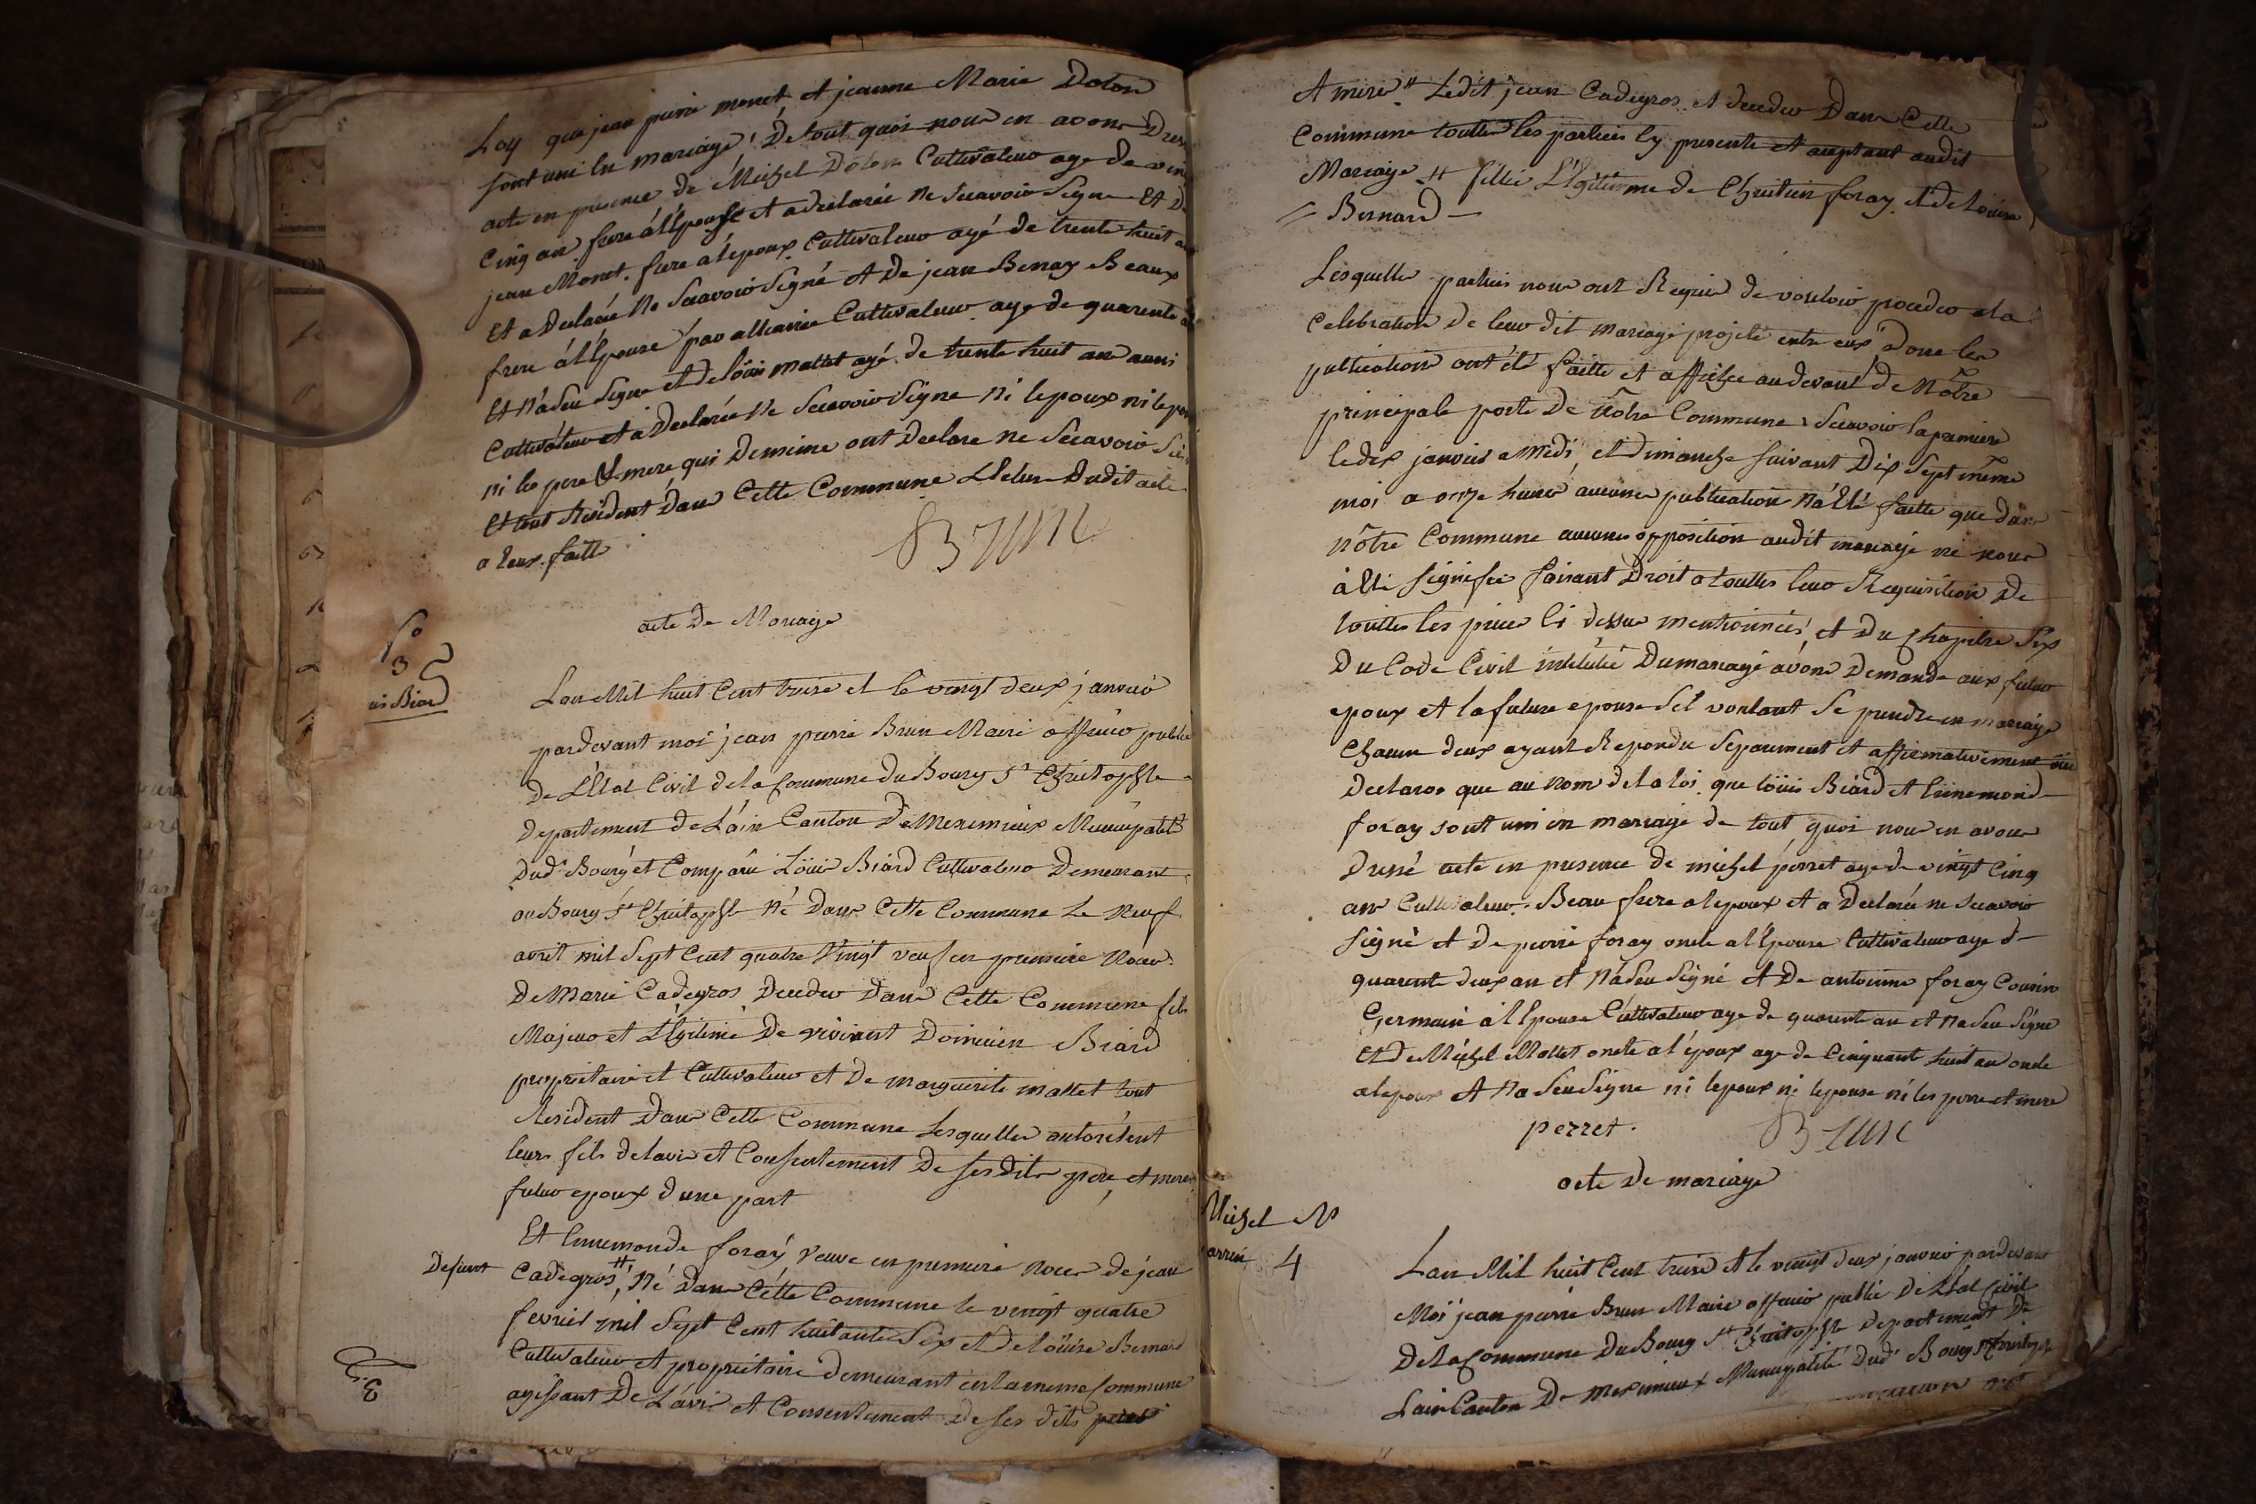 Loy que jean pierre monet et jeanne Marie Dolon
sont uni en mariage De tout quoi nous en avons Dres
acte en presence de Michel Dolon Cultivateur age de vin
Cinq an frere a l'Epouse et a declarée ne Sceavoir Signe Et De
jean Monet frere a l'époux Cultivateur agé de trente huit an
Et a Declarée Ne Sceavoir Signé et De jean Benay Beaux
frere a l'Epouse par alliance Cultivateur age de quarente
Et n'a Seu Signe et de loüis mallet agé de trente huit an aussi
Cultivateur et a Declarée Ne Sceavoir Signe ni lepoux ni lepou
ni les pere & mere qui Demeime ont Declare ne Sceavoir Si
Et tout Resident Dans Cette Commune Lecture Dudit acte
a leux faitte
Brun
acte De Mariage
3
Lan Mil huit Cent treize et le vingt deux janvier
pardevant moi jean pierre Brun Maire officier public
De L'Etat Civil de la Commune Du Bourg St Christophle
departement de L'ain Canton De Meximieux Municipalité
Dud. Bourg et Comparu Loüis Biard Cultivateur Demeurant
au Bourg St Christophle Né Dans Cette Commune Le Neuf
avril mil Sept Cent quatre Vingt veuf en premiere Noces
De Marie Cadegros Decedeé Dans Cette Commune fils
Majeur et Legitime De vivant Dominien Biard
proprietaire et Cultivateur et De marguerite mallet tout
Resident Dans Cette Commune Lesquelles autorisent
leurs fils de lavis et Consentement De ses Dits pere et mere
futur epoux d'une part
Et Ennemonde foray Veuve en premiere noces de jean
Defunt
Cadegros # Né Dans Cette Commune le vingt quatre
fevrier mil Sept Cent huitante Six et de loüise Bernard
Cultivateur et proprietaire demeurant en la meme Commune
agissant De L'avis et Consentement De ses dits peres
Et mere # Ledit jean Cadegros et decedeé Dans Cette
Commune touttes les parties Cy presente et aceptant audit
Mariage # fillie L'Egitimme de Christien foray et de Loüise
Bernard
Lesquelles parties nous ont Requis de vouloir proceder a la
Celebration De leur dit mariage projeté entre eux Done les
publications ont été faitte et affichee au devant de Nôtre
principale porte De Nôtre Commune Sceavoir la premiere
le dix janvier a Midi et dimanche suivant Dix Sept même
moi a onze heures aucune publication N'a Eté faitte que dans
nôtre Commune aucunes opposition audit mariage ne nous
à Eté Signifiée faisant Droit a touttes leur Requisition De
touttes les pieces Ci dessus mentionnées et Du Chapitre Six
Du Code Civil intitulée Du mariage avons Demande aux futur
epoux et la future epouse S'il veulent Se prendre en mariage
Chacun deux ayant Repondu Separement et affirmativement oüi
Declaros que au Nom de la loi que loüis Biard et Ennemond
foray sont uni en mariage de tout quoi nous en avons
Dressé acte en presence de michel perret age de vingt Cinq
ans Cultivateur Beau frere a lepoux et a Declarée ne Sceavoir
Signé et De pierre foray oncle a l'Epouse Cultivateur age d
quarente deux an et N'a Seu Signé et De antoinne foray Cousin
Germain a l'Epouse Cultivateur age de quarente an et N'a Seu Signe
Et De Michel Mallet oncle a l'époux age de Cinquant huit an oncle
a lepoux et Na Seu Signe ni lepoux ni lepouse ni les pere et mere
perret
Brun
acte De mariage
Michel M
4
Lan Mil huit Cent treize et le vingt deux janvier pardevant
Moi jean pierre Brun Maire officier public De L'Etat Civil
De la Commune Du Bourg St Christophle Departement De
Lain Canton De Meximieux Municipalité Dud. Bourg St Christophle